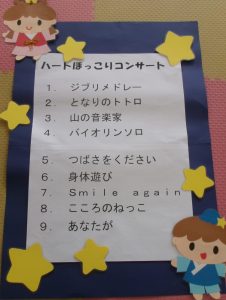 ハートほっこりコンサート
１． ジブリメドレー
２． となりのトトロ
３． 山の音楽家
４． バイオリンソロ
５． つばさをください
６． 身体遊び
７． Ｓｍｉｌｅ ａｇａｉｎ
８． こころのねっこ
９． あなたが